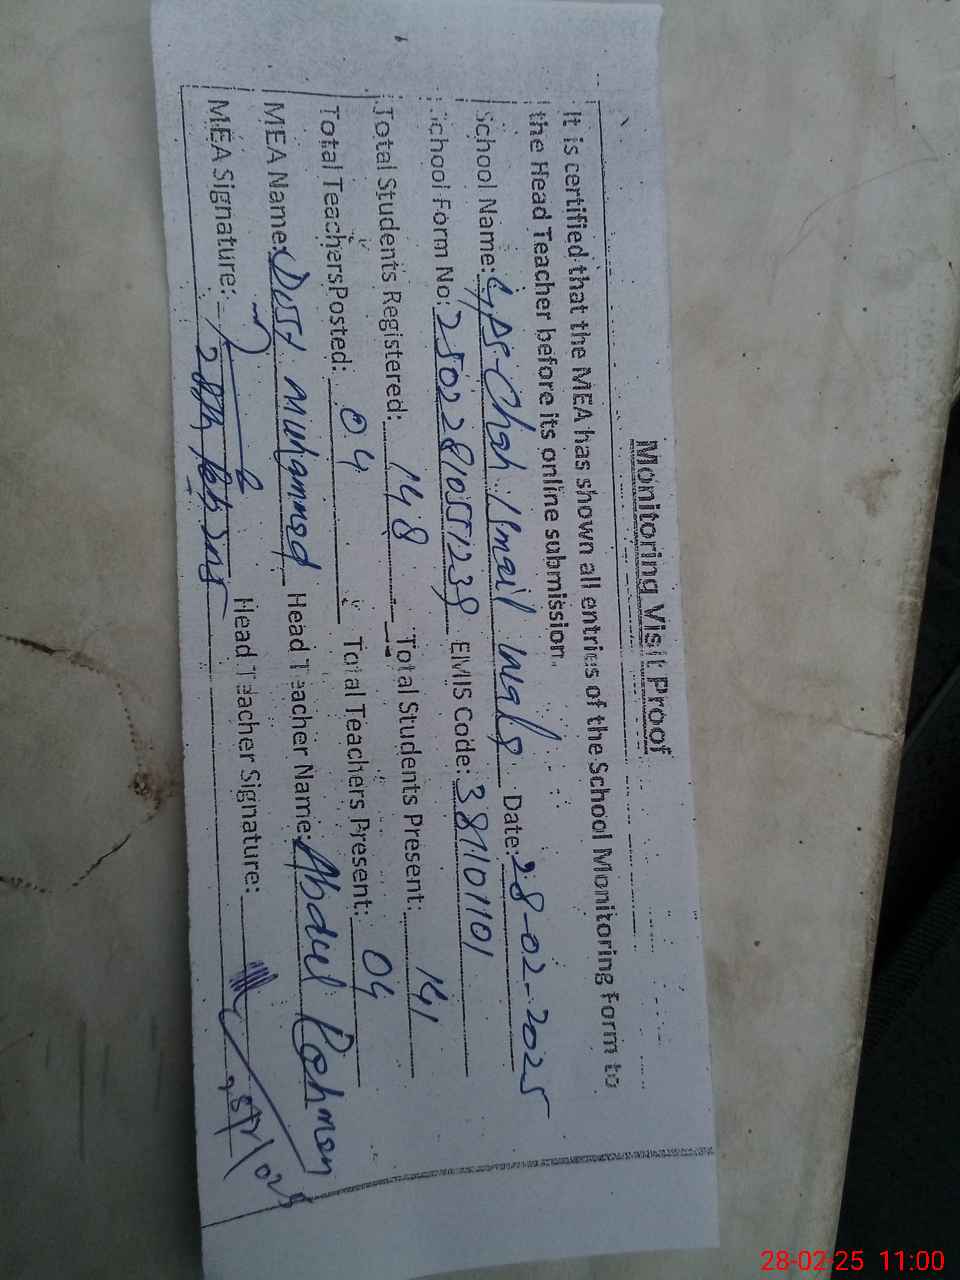 Monitoring Visit Proof
It is certified that the MEA has shown all entries of the School Monitoring Form to
the Head Teacher before its online submission.
School Name: GPS Chah Ismail Wala Date: 28-02-2025
School Form No: 25022810551239 EMIS Code: 381101101
Total Students Registered: 148 Total Students Present: 141
Total Teachers Posted: 04 Total Teachers Present: 04
MEA Name: Dost Muhammad Head Teacher Name: Abdul Rahman
MEA Signature: Head Teacher Signature:
28th Feb 2025
28-02-25 11:00